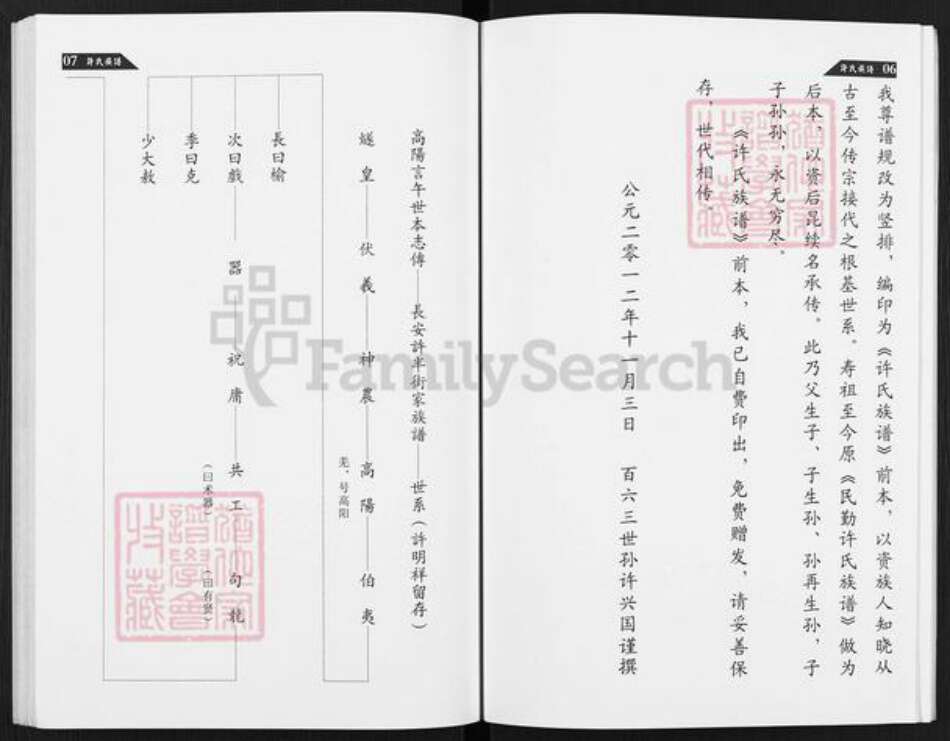 許氏族譜 06
我尊谱规改为竖排，编印为《许氏族谱》前本，以资族人知晓从
古至今传宗接代之根基世系。寿祖至今原《民勤许氏族谱》做为
后本，以资后昆续名承传。此乃父生子、子生孙、孙再生孙，子
子孙孙，永无穷尽。
《许氏族谱》前本，我已自费印出，免费赠发，请妥善保
存，世代相传。
公元二零一二年十一月三日 百六三世孙许兴国谨撰
07 許氏族譜
高陽言午世本志傳——長安許半街家族譜——世系（許明祥留存）
燧皇——伏義——神農——高陽——伯夷
羌、号高阳
長曰榆
次曰戲——器——祝庸——共工——句龍
（曰术器） （曰有贤）
季曰克
少大敖
FamilySearch